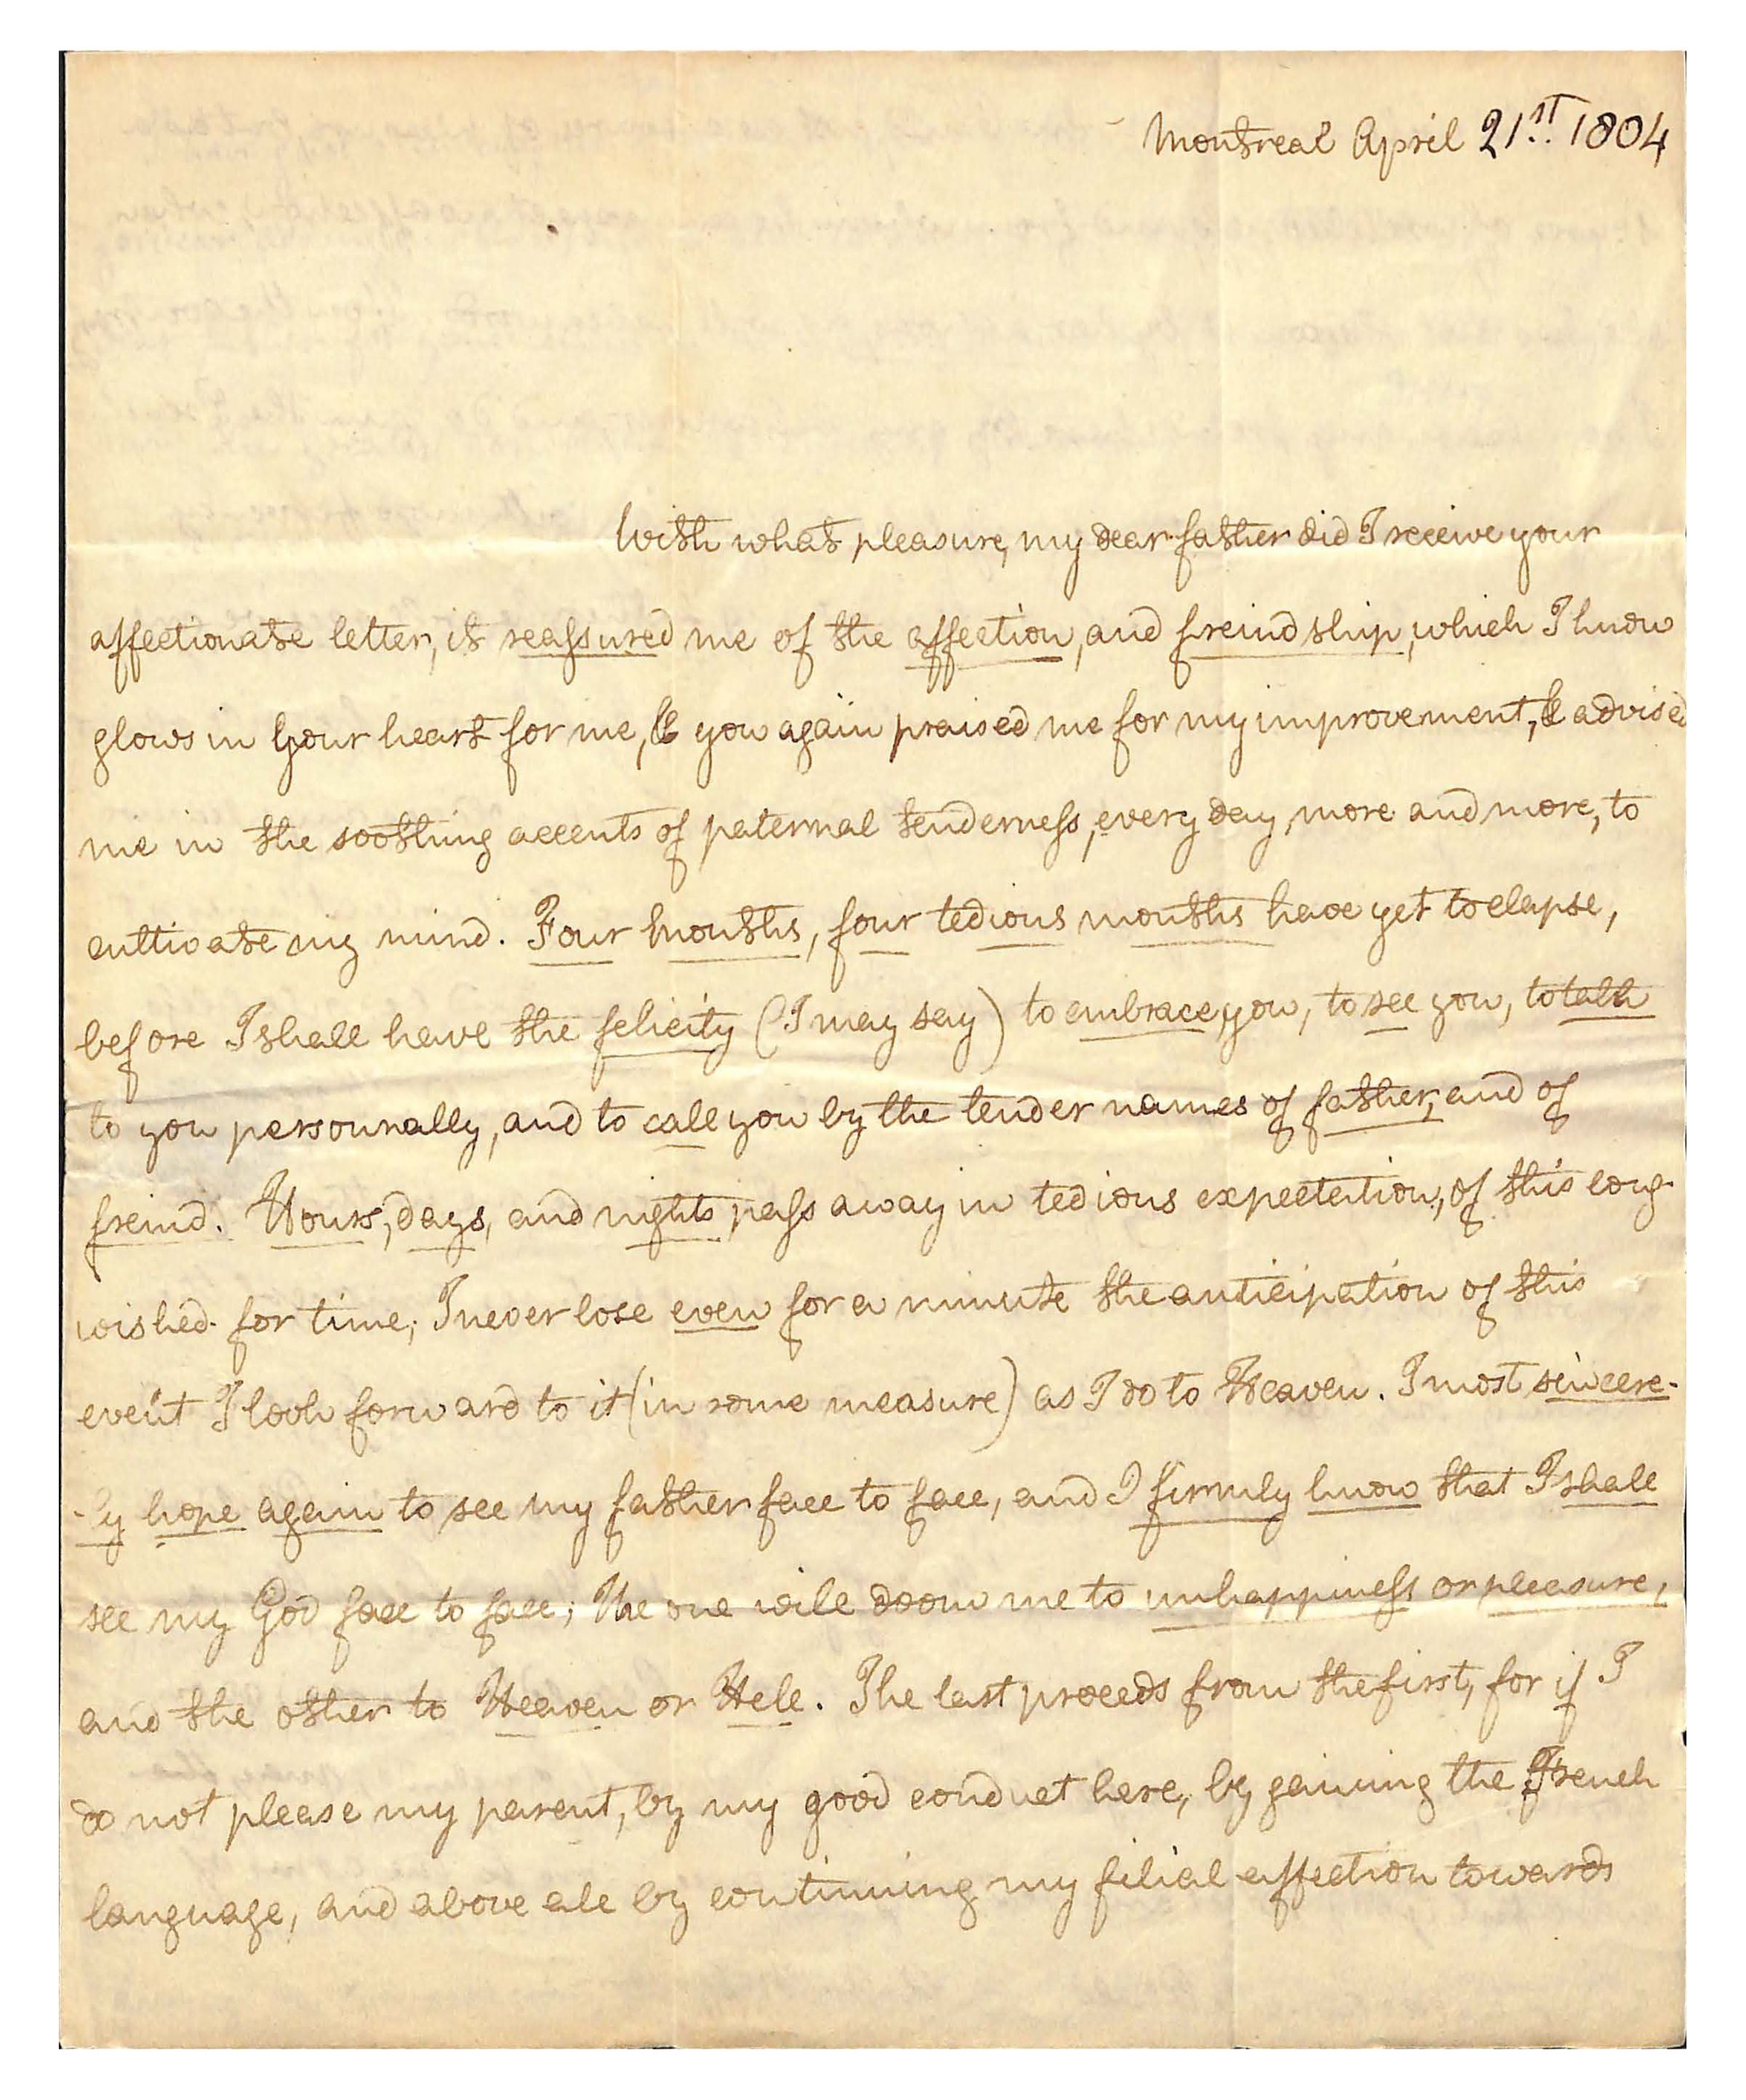 Montreal April 21st. 1804
With what pleasure, my dear father did I receive your
affectionate letter, it reassured me of the affection, and freindship, which I know
glows in your heart for me, & you again praised me for my improvement, & advised
me in the soothing accents of paternal tenderness, every day, more and more, to
cultivate my mind. Four months, four tedious months have yet to elapse,
before I shall have the felicity (I may say) to embrace, you, to see you, to talk
to you personnally, and to call you by the tender names of father, and of
freind. Hours, days, and nights, pass away in tedious expectation, of this long-
wished-for time; I never lose even for a minute the anticipation of this
event I look forward to it (in some measure) as I do to Heaven. I most sincere-
-ly hope again to see my father face to face, and I firmly know that I shall
see my God face to face; The one will doom me to unhappiness or pleasure,
and the other to Heaven or Hell. The last proceeds from the first, for if I
do not please my parent, by my good conduct here, by gaining the French
language, and above all by continuing my filial affection towards